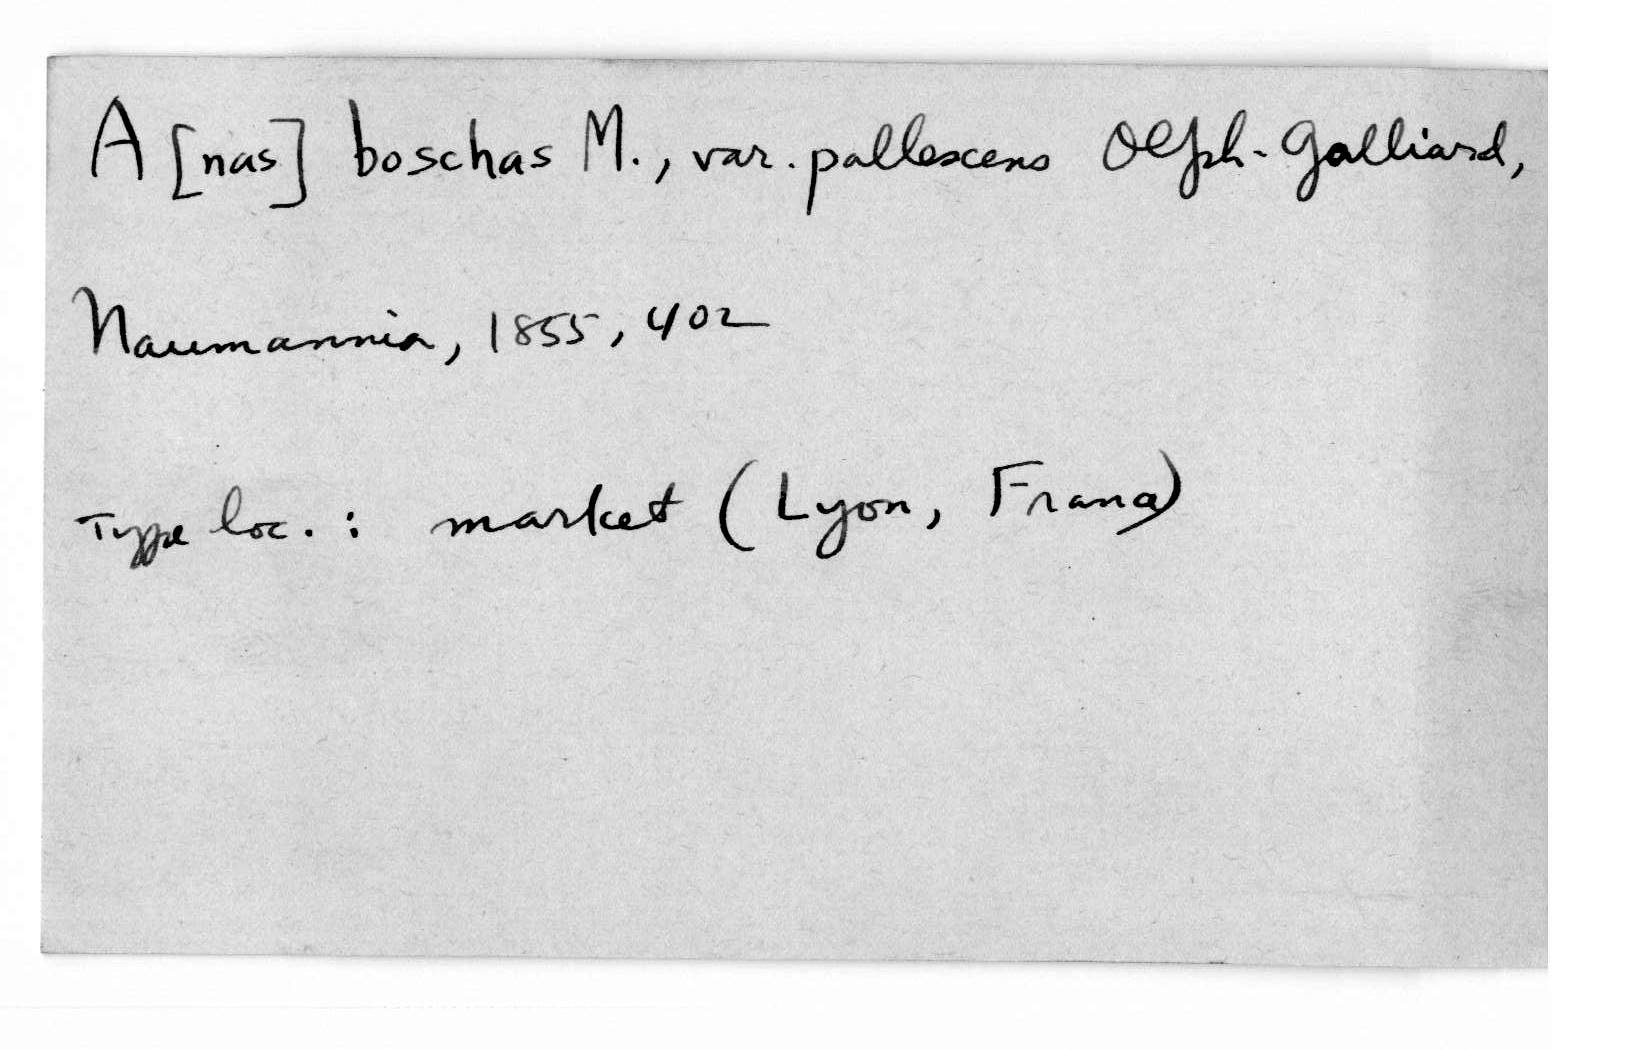 A [nas] boschas M., var. pallescens Olph-Galliard,
Naumannia, 1855, 402
Type loc. : market (Lyon, France)